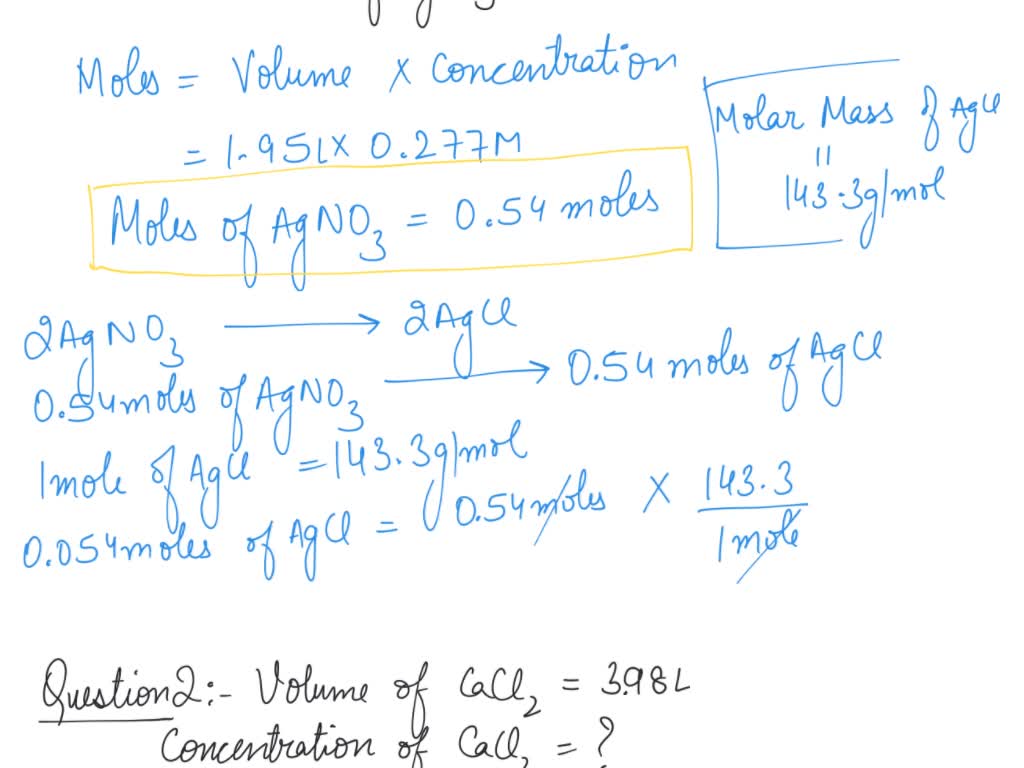 Moles = Volume × Concentration
= 1.95L × 0.277M
Moles of AgNO3 = 0.54 moles
Molar Mass of AgCl
=
143.3g/mol
2AgNO3 → 2AgCl
0.54moles of AgNO3 → 0.54 moles of AgCl
1mole of AgCl = 143.3g/mol
0.054moles of AgCl = 0.54moles × 143.3 / 1mole
Question2:- Volume of CaCl2 = 3.98L
Concentration of CaCl2 = ?